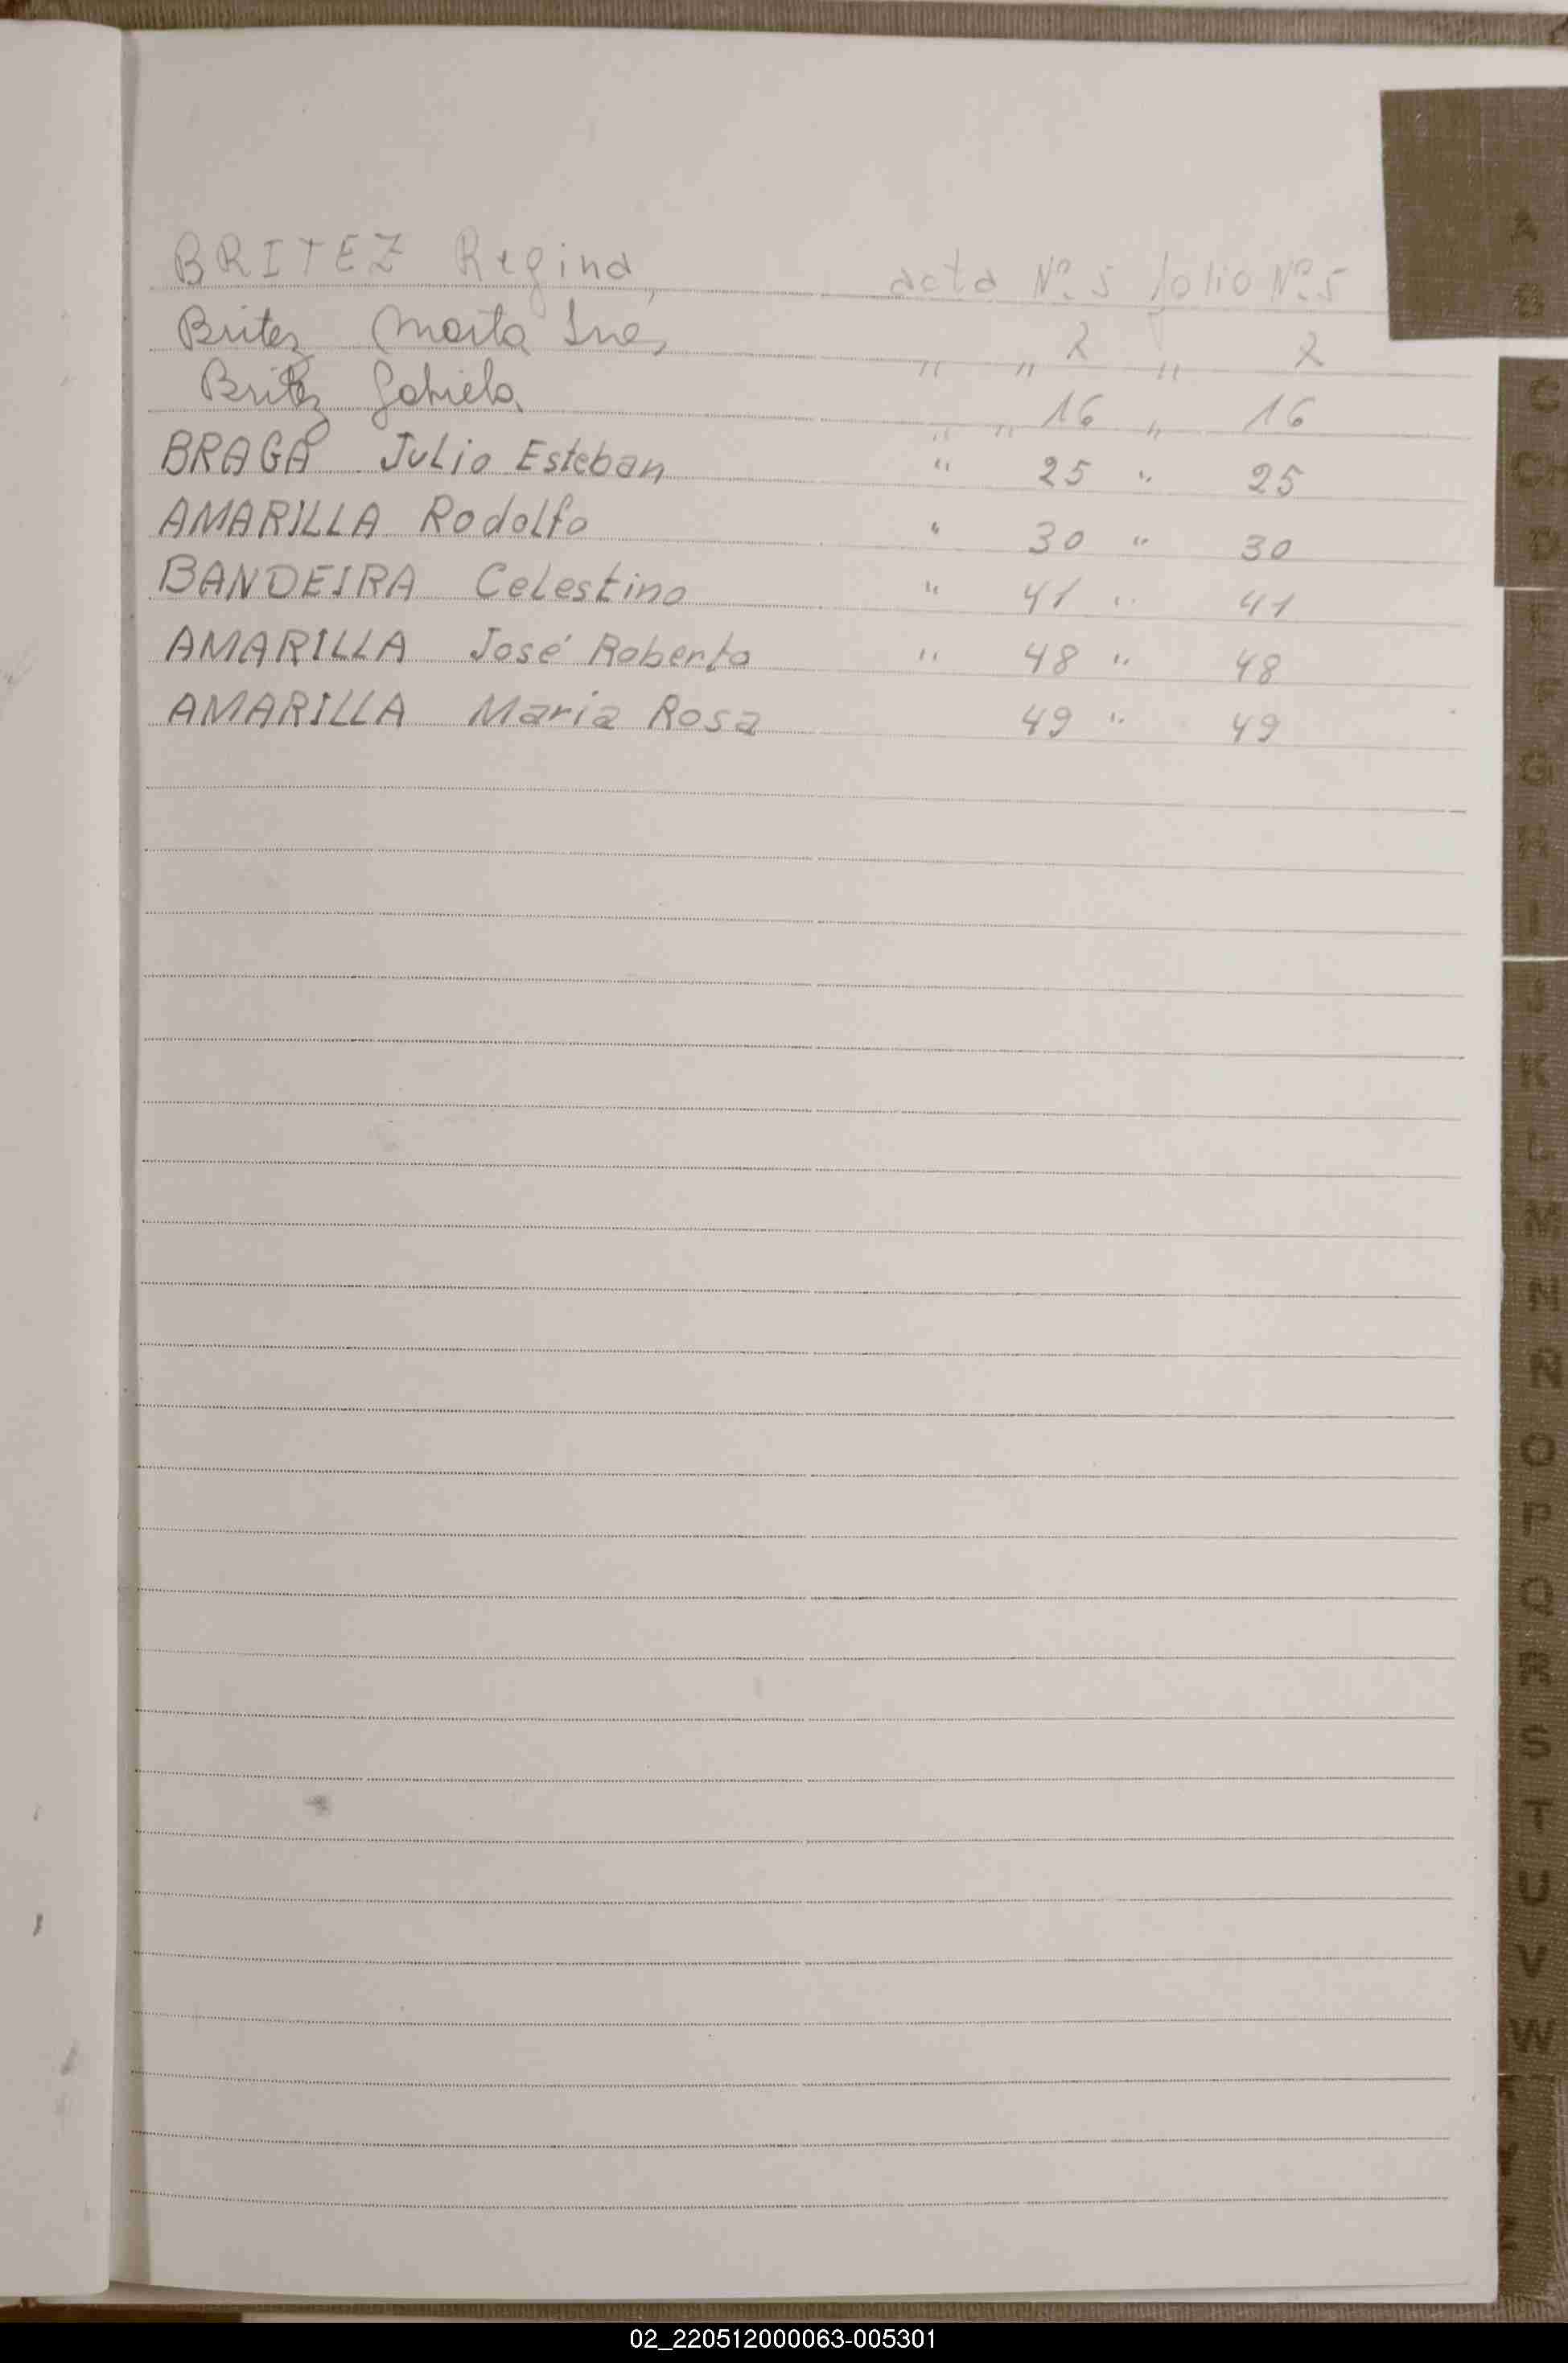 BRITEZ Regina, acta Nº. 5 folio Nº. 5
Britez Marta Ine, " " 2 " 2
Britez Gabriela " " 16 " 16
BRAGA Julio Esteban " 25 " 25
AMARILLA Rodolfo " 30 " 30
BANDEIRA Celestino " 41 " 41
AMARILLA José Roberto " 48 " 48
AMARILLA Maria Rosa 49 " 49
A
B
C
CH
D
E
F
G
H
I
J
K
L
M
N
Ñ
O
P
Q
R
S
T
U
V
W
X
Y
Z
02_220512000063-005301